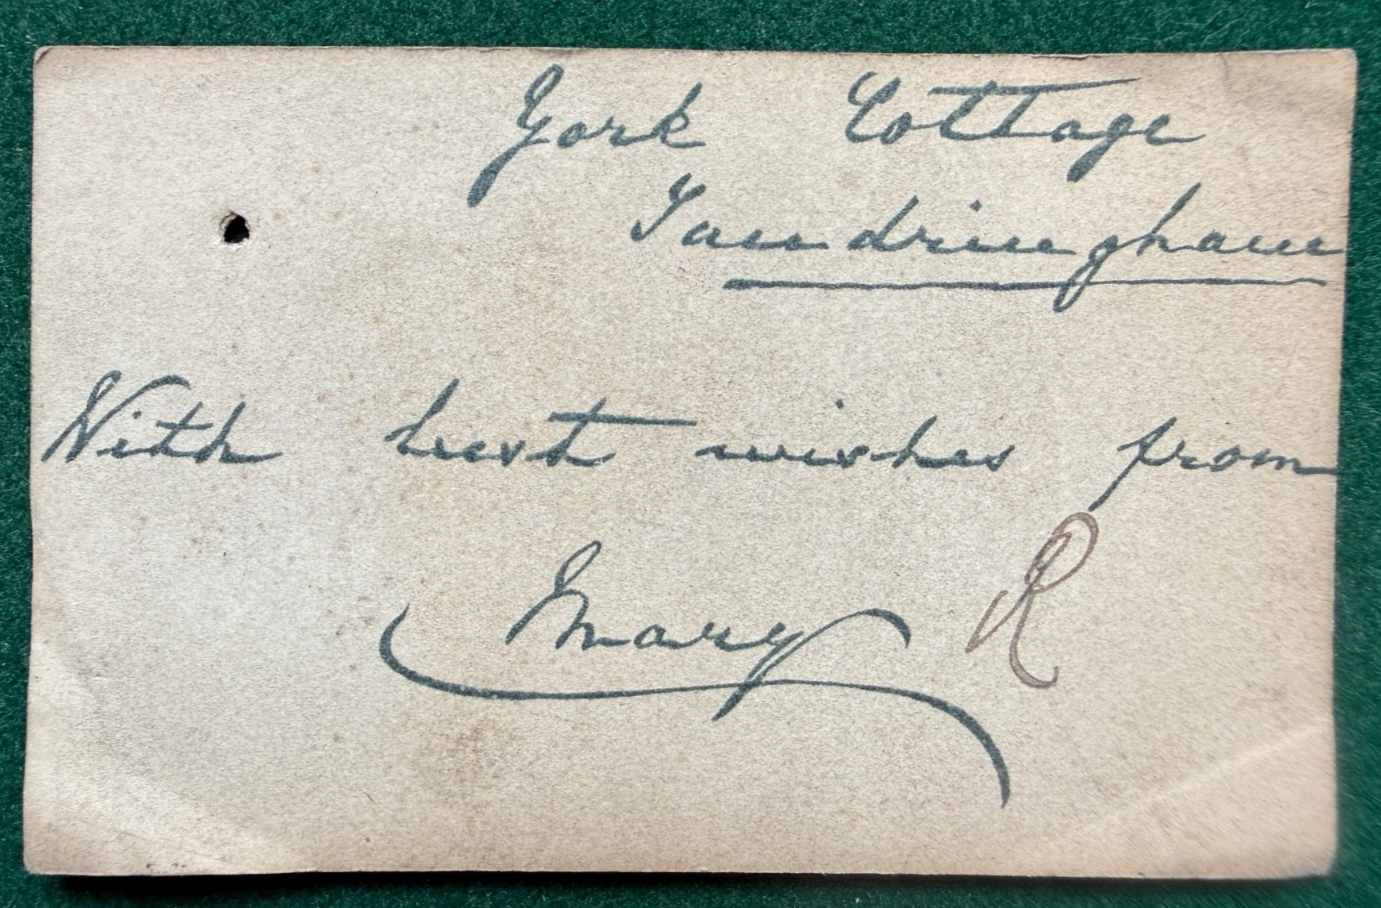 York Cottage
Sandringham
With best wishes from
Mary R